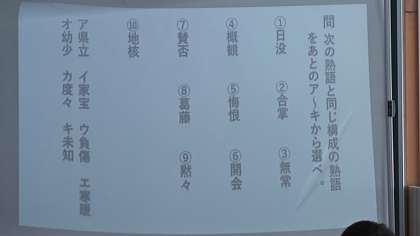 問 次の熟語と同じ構成の熟語
をあとのア〜キから選べ。
①日没 ②合掌 ③無常
④概観 ⑤悔恨 ⑥開会
⑦賛否 ⑧葛藤 ⑨黙々
⑩地核
ア県立 イ家宝 ウ負傷 エ寒暖
オ幼少 カ度々 キ未知